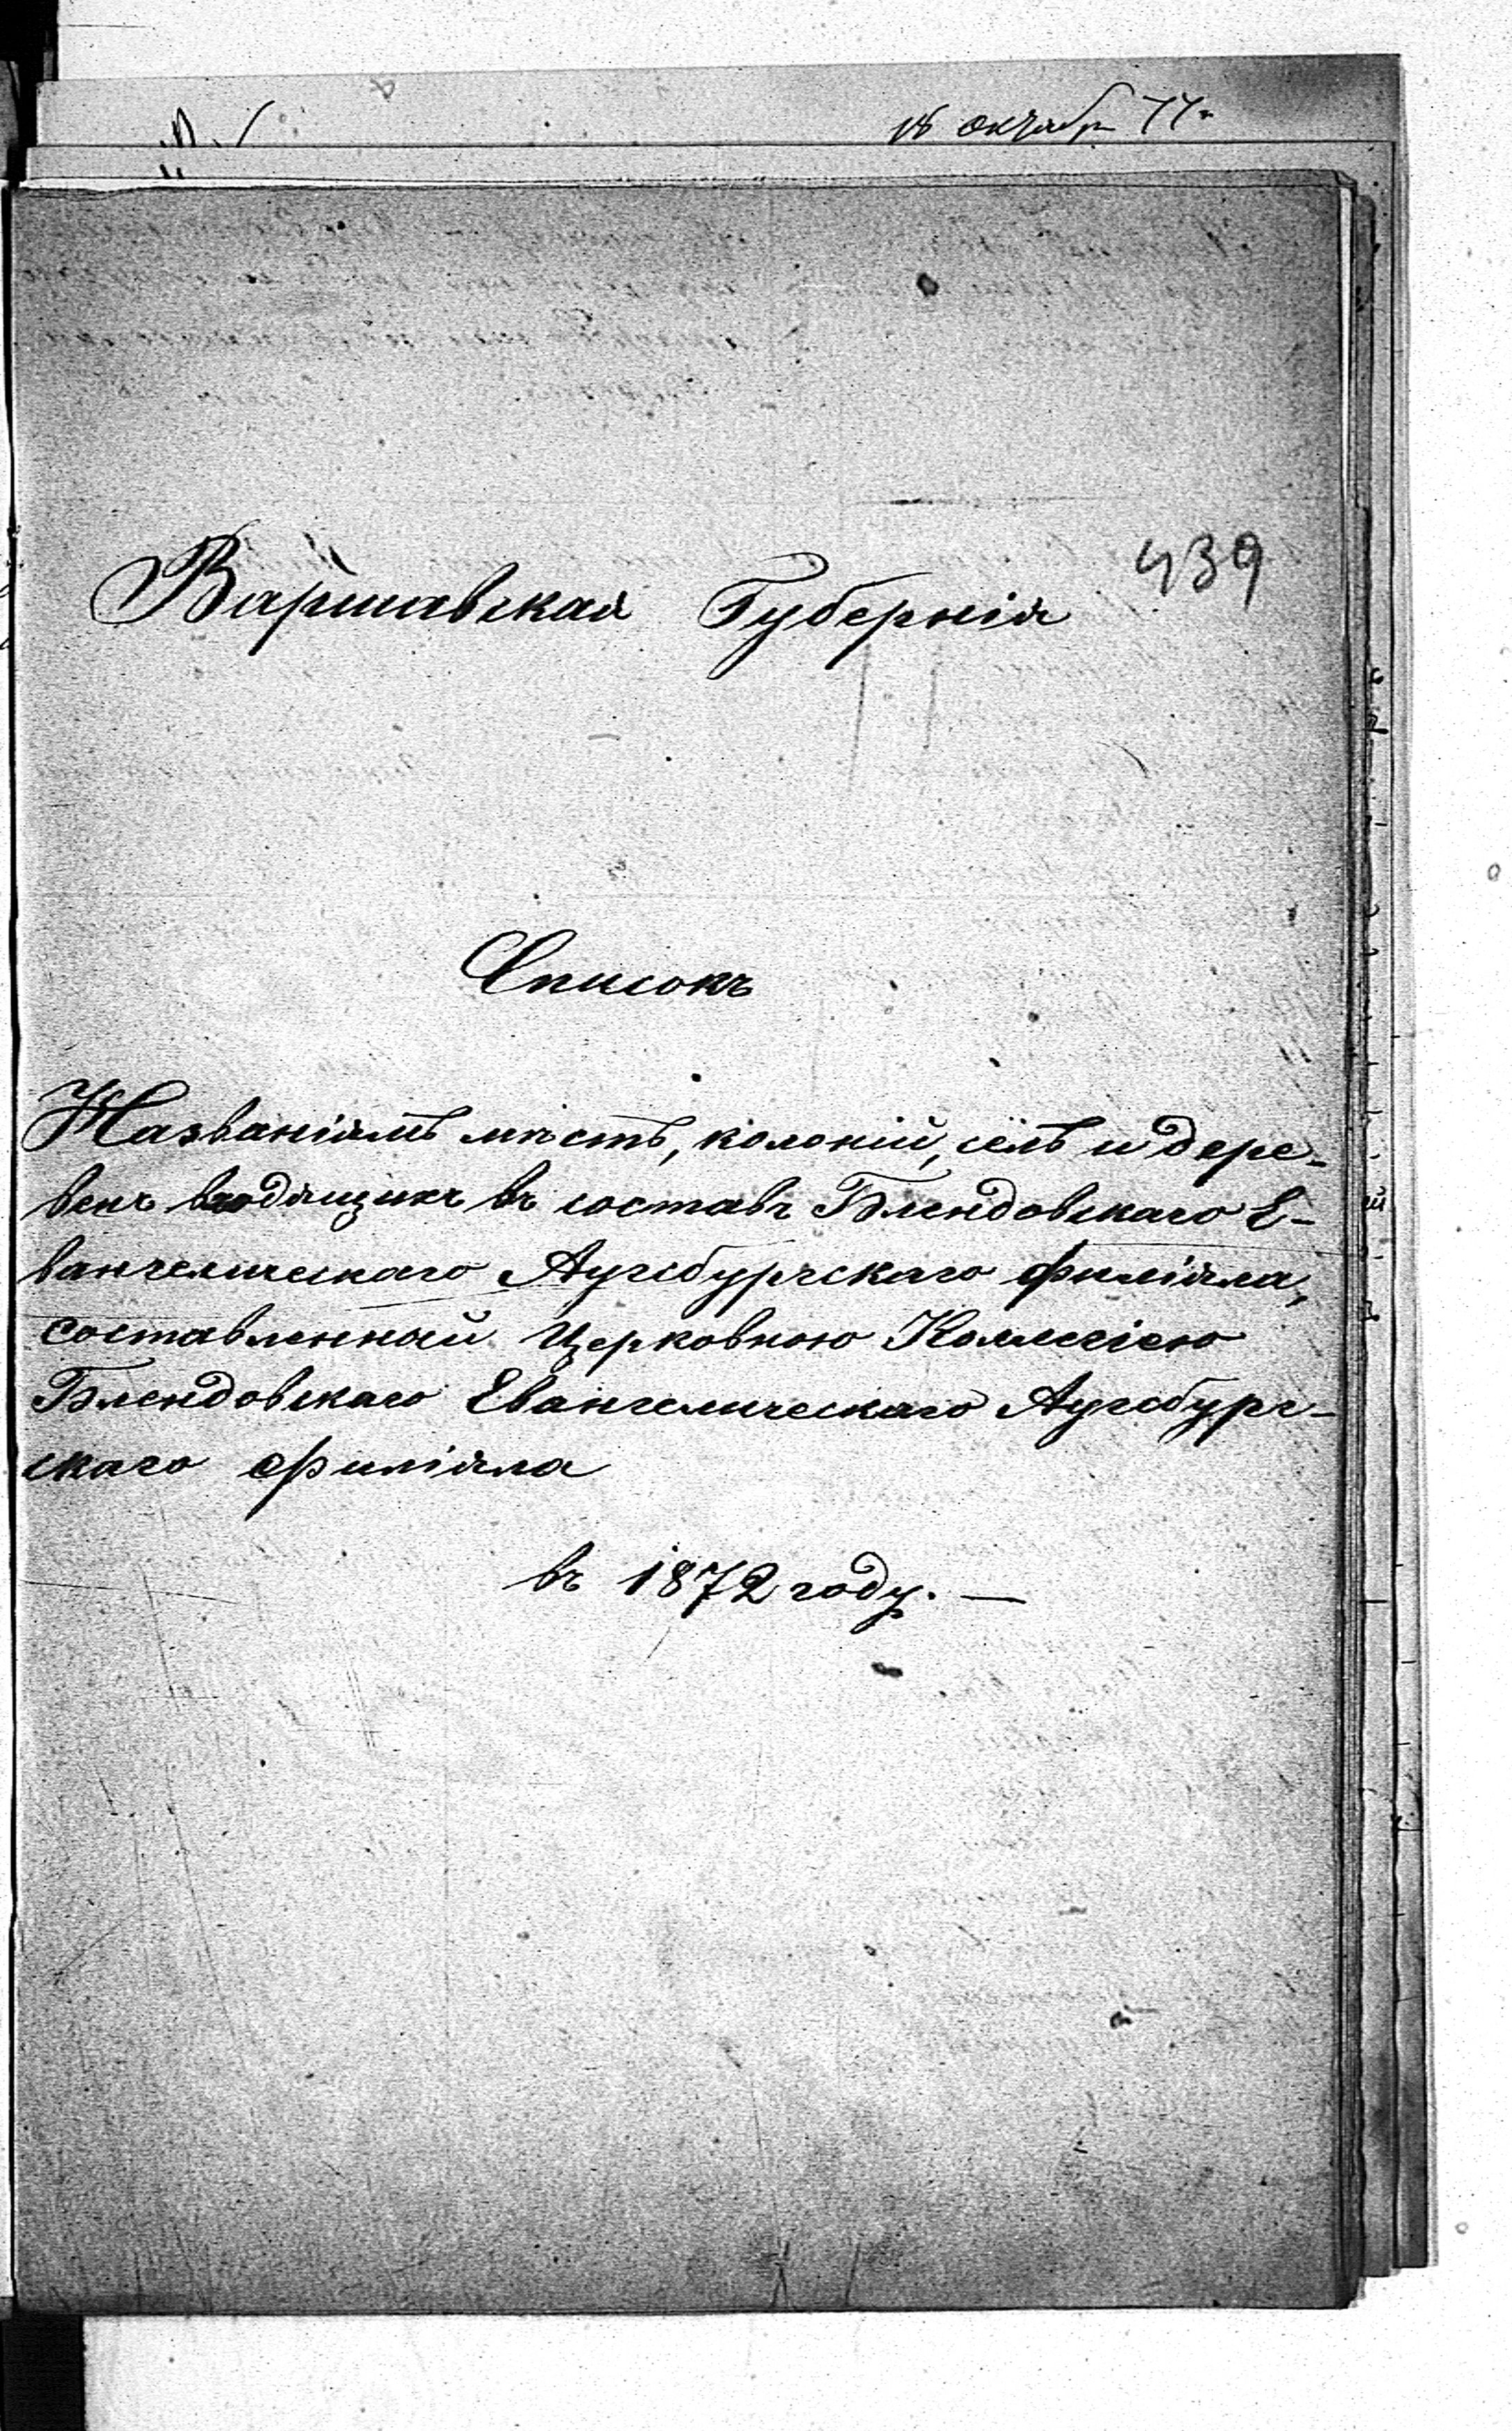 октабр 77г
439
Варшавская Губернія
Списокъ
Названіямъ мѣстъ, колоній, селъ и дере-
вень входящихъ въ составъ Блендовскаго Е-
вангелическаго Аугсбургскаго филіяла,
составленный Церковною Коллегіею
Блендовскаго Евангелическаго Аугсбург-
скаго филіяла
въ 1872 году. —